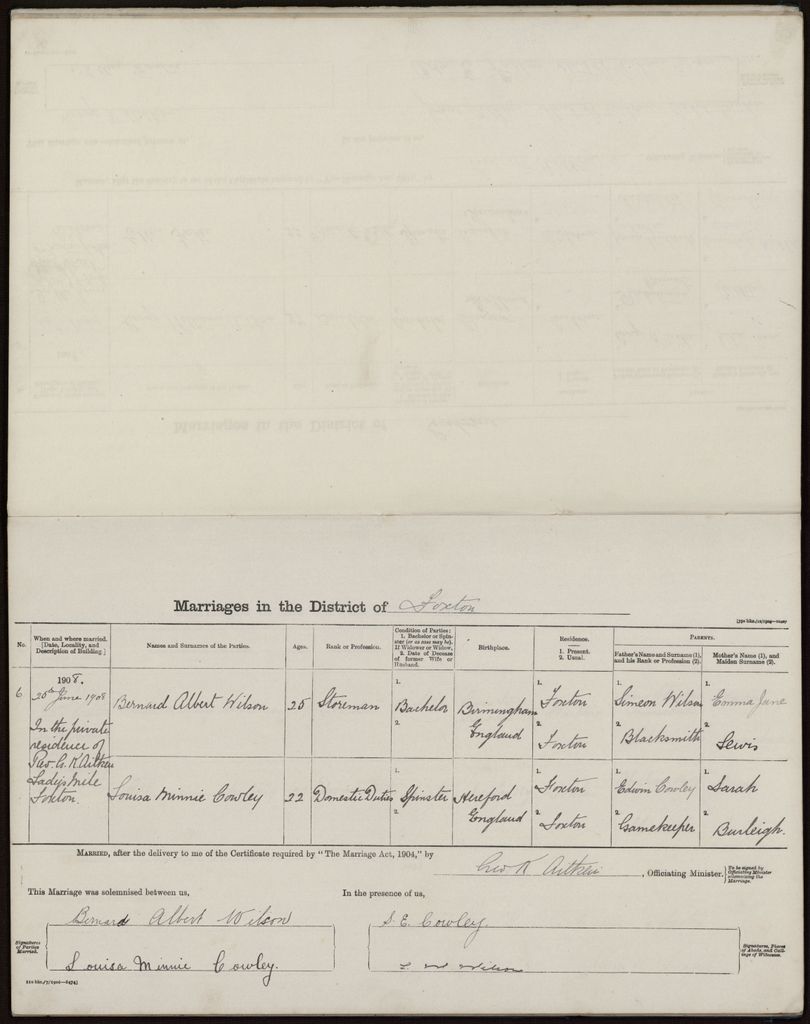 Marriages in the District of Foxton
No.
When and where married.
[Date, Locality, and
Description of Building.]
Names and Surnames of the Parties.
Ages.
Rank or Profession.
Condition of Parties:
1. Bachelor or Spin-
ster (or as case may be).
If Widower or Widow,
2. Date of Decease
of former Wife or
Husband.
Birthplace.
Residence.
1. Present.
2. Usual.
PARENTS.
Father's Name and Surname (1),
and his Rank or Profession (2).
Mother's Name (1), and
Maiden Surname (2).
6
1908.
25th June 1908
In the private
residence of
Rev. G. K Aitken
Ladys Mile
Foxton.
Bernard Albert Wilson
25
Storeman
1.
Bachelor
2.
Birmingham
England
1.
Foxton
2.
Foxton
1.
Simeon Wilson
2.
Blacksmith
1.
Emma Jane
2.
Lewis
Louisa Minnie Cowley
22
Domestic Duties
1.
Spinster
2.
Hereford
England
1.
Foxton
2.
Foxton
1.
Edwin Cowley
2.
Gamekeeper
1.
Sarah
2.
Burleigh.
MARRIED, after the delivery to me of the Certificate required by "The Marriage Act, 1904," by
Geo K Aitken, Officiating Minister.
To be signed by
Officiating Minister
solemnizing the
Marriage.
This Marriage was solemnised between us,
In the presence of us,
Bernard Albert Wilson
S. E. Cowley.
Signatures
of Parties
Married.
Louisa Minnie Cowley.
Wilson
Signatures, Places
of Abode, and Call-
ings of Witnesses.